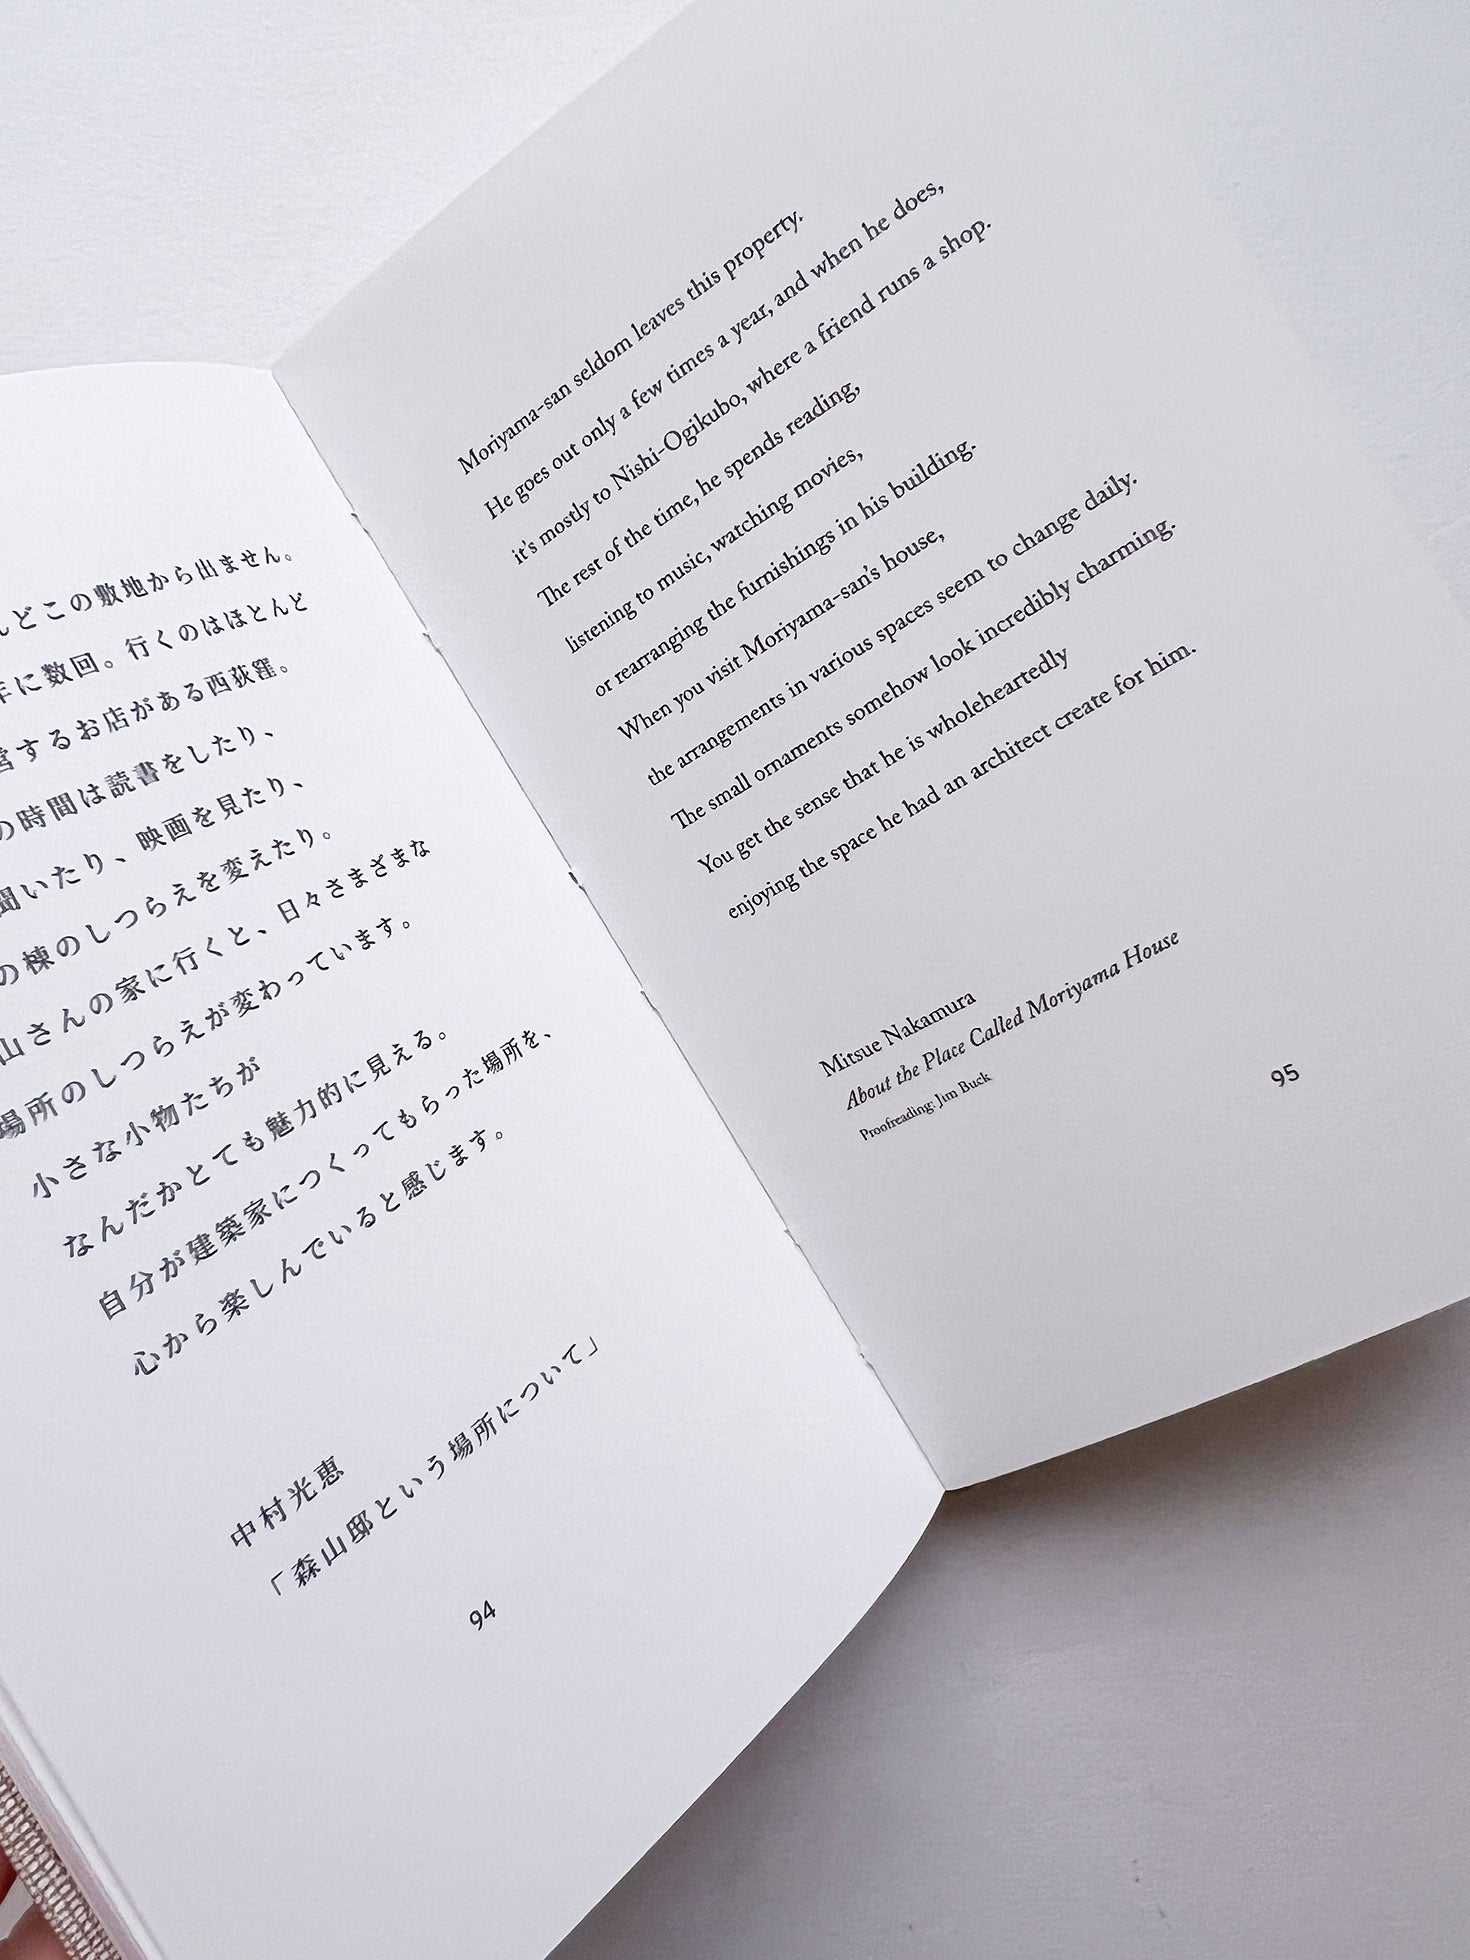 んどこの敷地から出ません。
年に数回。行くのはほとんど
営するお店がある西荻窪。
の時間は読書をしたり、
聞いたり、映画を見たり、
の棟のしつらえを変えたり。
山さんの家に行くと、日々さまざまな
場所のしつらえが変わっています。
小さな小物たちが
なんだかとても魅力的に見える。
自分が建築家につくってもらった場所を、
心から楽しんでいると感じます。
中村光恵
「森山邸という場所について」
94
Moriyama-san seldom leaves this property.
He goes out only a few times a year, and when he does,
it's mostly to Nishi-Ogikubo, where a friend runs a shop.
The rest of the time, he spends reading,
listening to music, watching movies,
or rearranging the furnishings in his building.
When you visit Moriyama-san's house,
the arrangements in various spaces seem to change daily.
The small ornaments somehow look incredibly charming.
You get the sense that he is wholeheartedly
enjoying the space he had an architect create for him.
Mitsue Nakamura
About the Place Called Moriyama House
Proofreading: Jim Buck
95